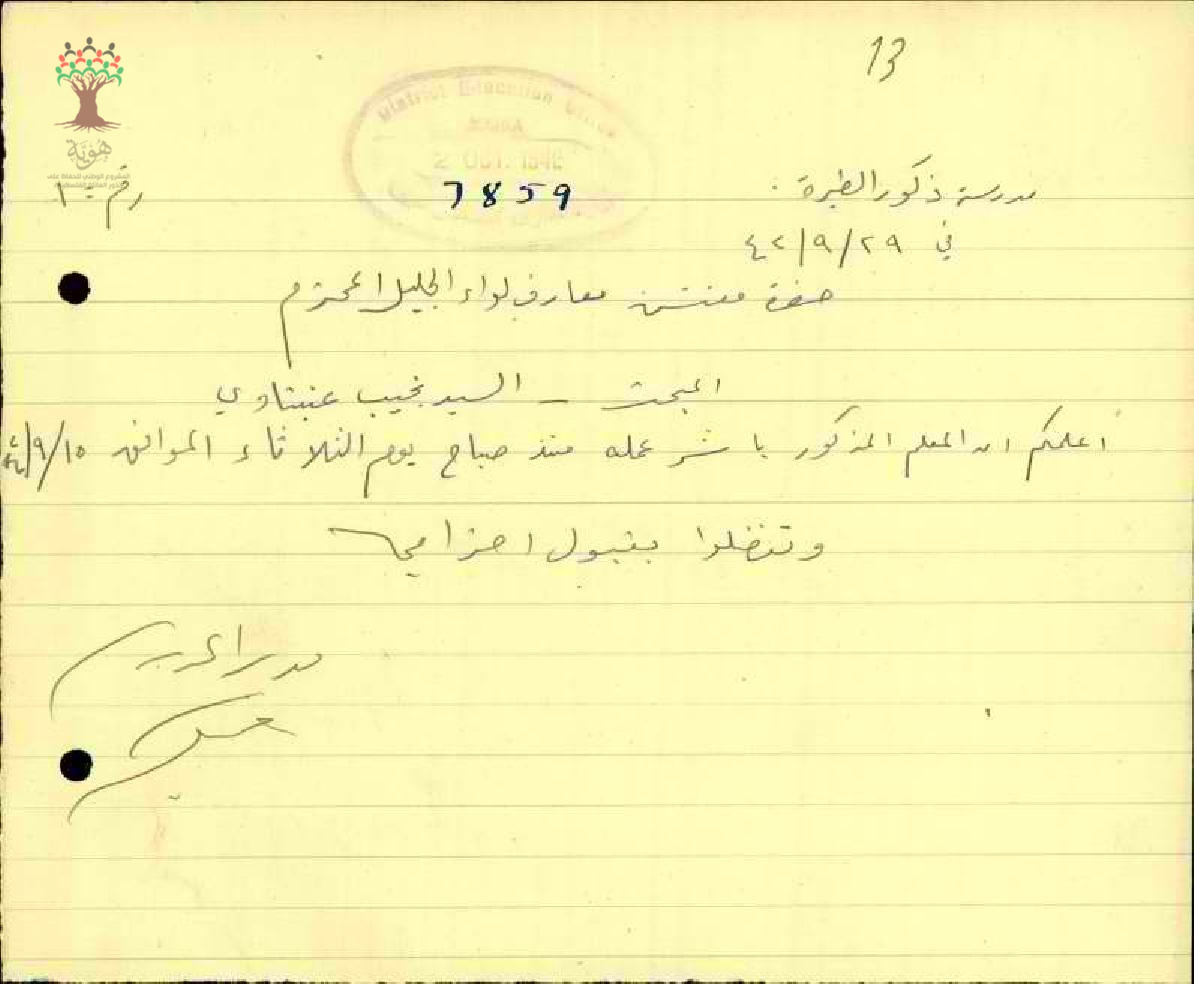 13
District Education Office
2 OCT. 1942
7859
هوية
المشروع الوطني للحفاظ على
رقم - ١٠
مدرسة ذكور الطيرة .
في ٢٩/٩/٤٢
حضرة مفتش معارف لواء الجليل المحترم
المبحث - السيد نجيب عنبتاوي
أعلمكم ان المعلم المذكور باشر عمله منذ صباح يوم الثلاثاء الموافق ١٥/٩/٤٢
وتفضلوا بقبول احترامي
مدير المدرسة